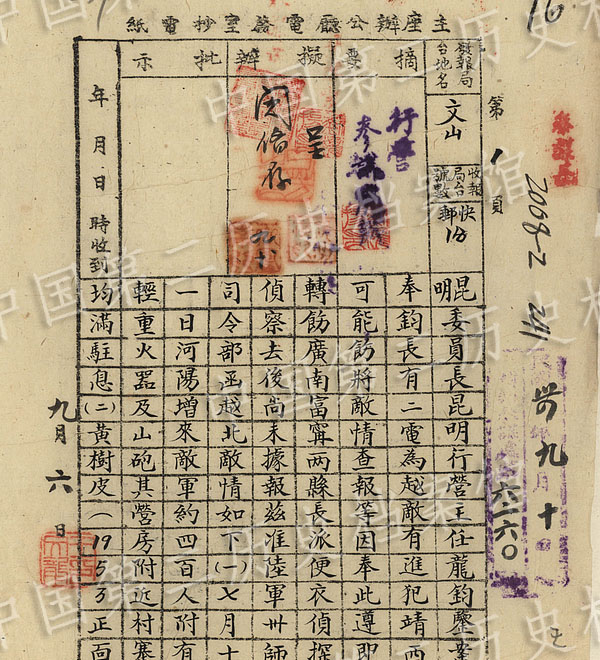 主座辦公廳電務室抄電紙
第1頁
發報局台地名
文山
收報局台號數
快郵1份
摘要
行營
擬辦
呈
閱條存
九、十
批示
年月日時收到
昆明委員長昆明行營主任龍鈞鑒案
奉鈞長有二電為越敵有進犯靖西
可能飭將敵情查報等因奉此遵即
轉飭廣南富甯兩縣長派便衣偵探
偵察去後尚未據報茲准陸軍卅師
司令部函越北敵情如下(一)七月十
一日河陽增來敵軍約四百人附有
輕重火器及山砲其營房附近村寨
均滿駐息(二)黃樹皮(1953正面
九月六日
2068-2
241
卅九月十
六一六〇
16
中国第二历史档案馆